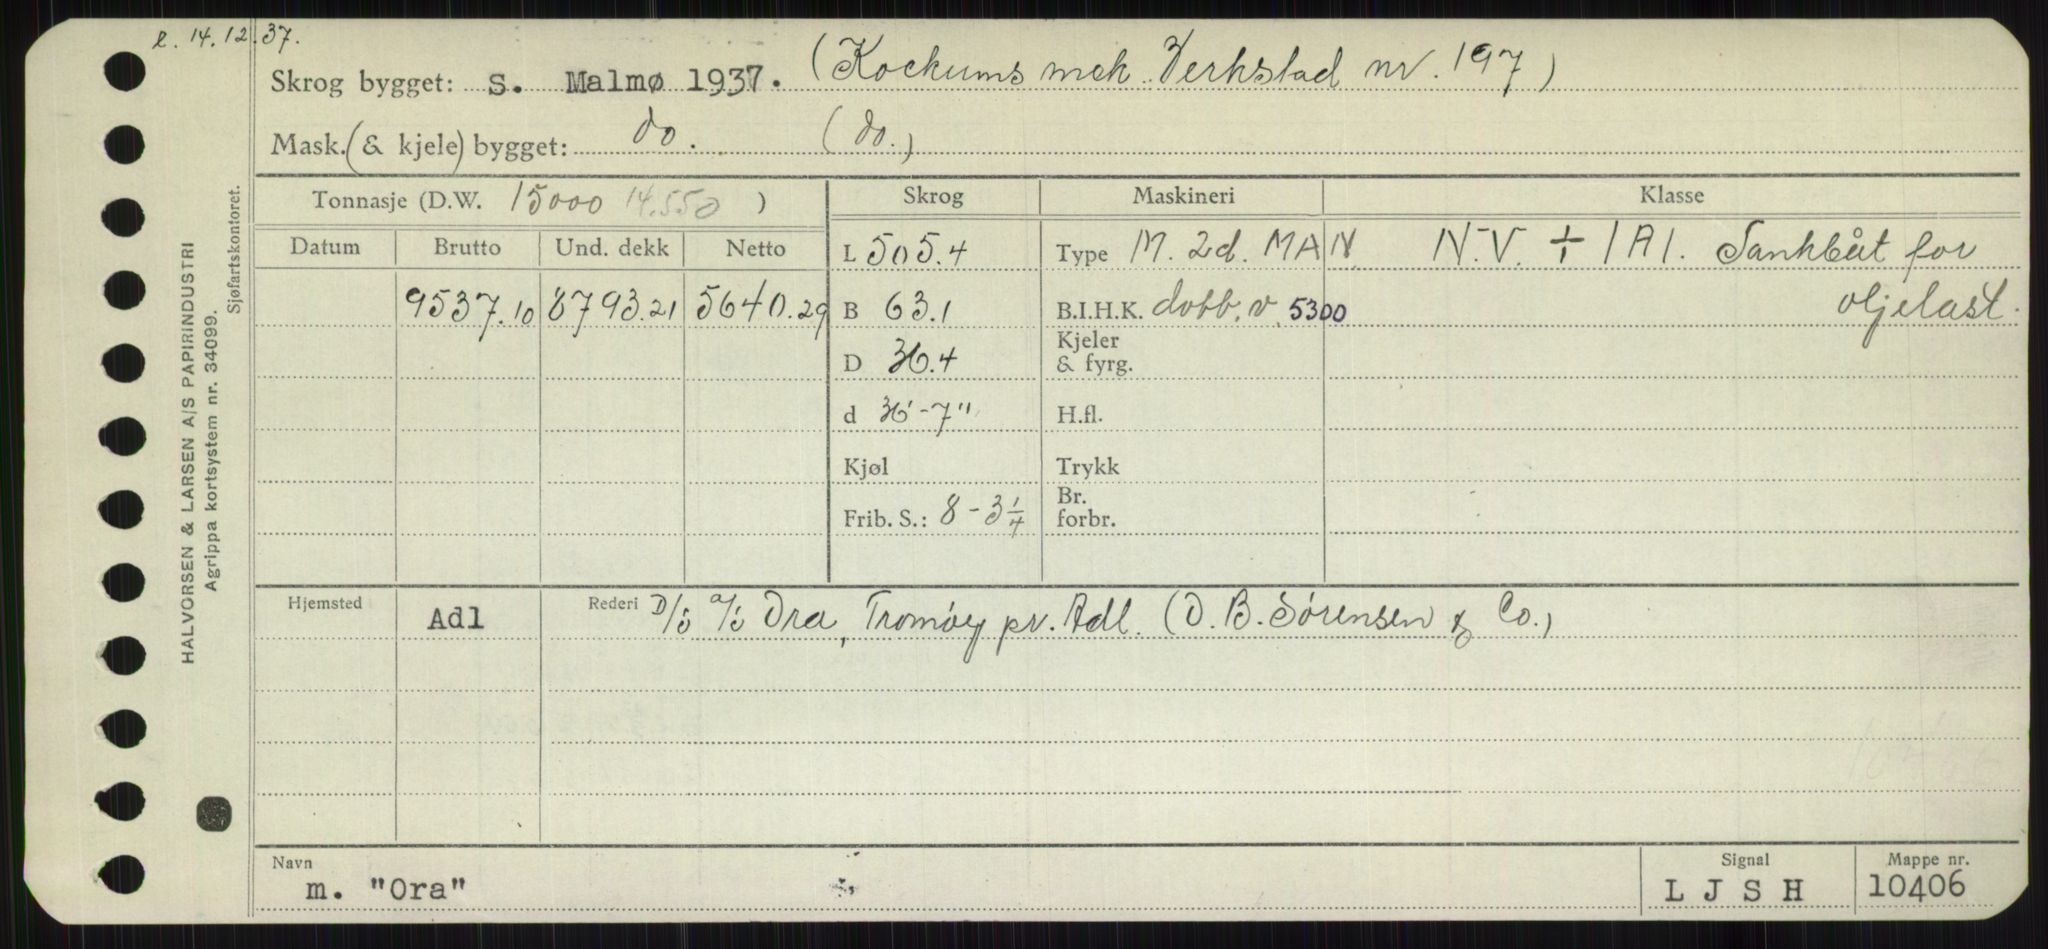 l. 14.12.37.
Skrog bygget: S. Malmø 1937. (Kockums mek. Verkstad nr. 197)
Mask. (& kjele) bygget: do. (do.)
Tonnasje (D.W. 15000 14.550 )
Skrog
Maskineri
Klasse
Datum Brutto Und. dekk Netto
L 505.4
Type M. 2d. MAN.
N.V. + 1A1. Tankbåt for
9537.10 8793.21 5640.29
B 63.1
B.I.H.K. dobb. v. 5300
oljelast.
D 36.4
Kjeler
& fyrg.
d 36'-7"
H.fl.
Kjøl
Trykk
Frib. S.: 8-3 1/4
Br.
forbr.
Hjemsted Adl Rederi D/S A/S Ora, Tromøy pr. Adl. (O. B. Sørensen & Co.)
Navn
m. "Ora"
Signal
LJSH
Mappe nr.
10406
HALVORSEN & LARSEN A/S PAPIRINDUSTRI
Agrippa kortsystem nr. 34099.
Sjøfartskontoret.